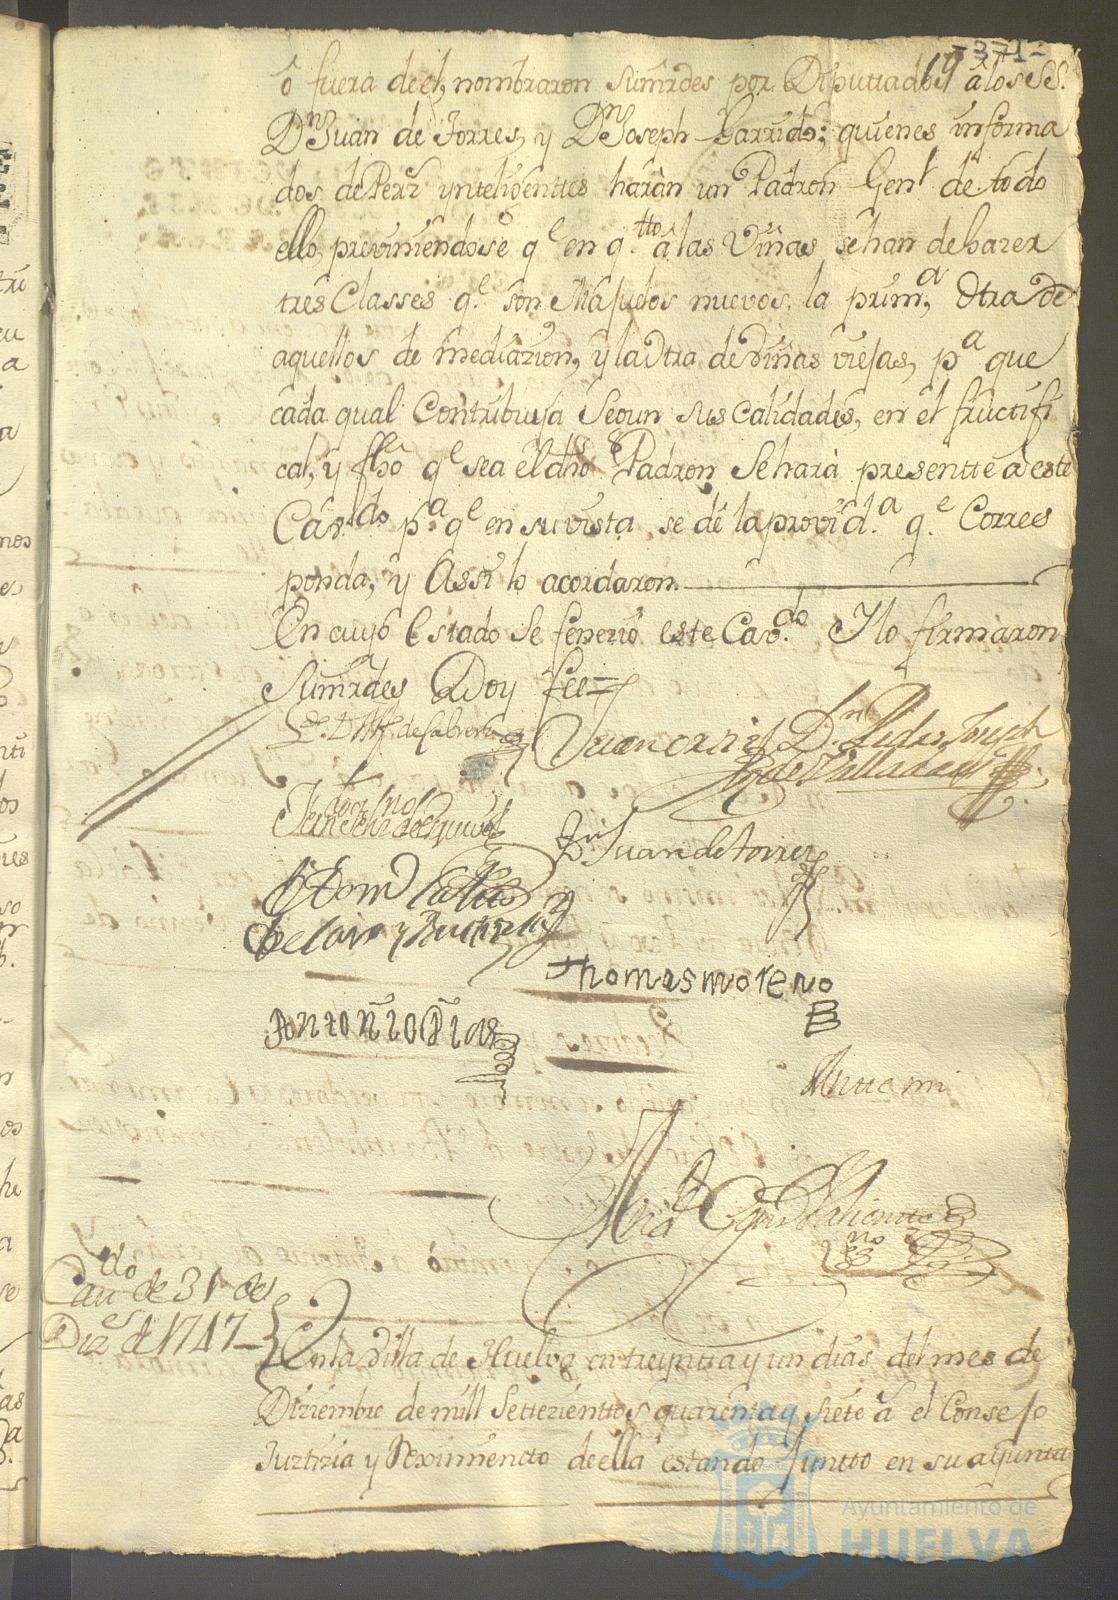 -371-
ô fuera de el, nombraron Sûmrdes por Diputtados â los SS.
Dn Juan de Torres, y Dn Joseph Garrido; quienes informa
dos de Pers.s ynteligenttes harán un Padron Genl de todo
ello, previniendose qe en q.tto â las Viñas se han de hazer
tres Classes qe. son Majuelos nuevos, la prim.a, Otra de
aquellos de mediazion, y la Otra de Viñas viejas, pa que
cada qual Contribuya Segun sus calidades, en el fructifi
cal, y fho qe sea el dho Padron Se hará presentte â este
Cav.do pa qe en su vista, se dé la provid.a qe. Corres
ponda, y Assi lo acordaron.
En cuyo Estado Se fenezió este Cav.do Y lo firmaron
Sûmrdes Doy fee=
de Cabrera
Dn Pedro Joseph
de Valladares
Dn Juan de Torres
Thomas moreno
Antonio Dias
Antte mi
Cav.do de 31 de
Dize de 1747
En la Villa de Huelva en treynta y un dias del mes de
Diziembre de mill Settezienttos quarenta y siete as el Consejo
Justizia y Reximiento de ella estando Juntto en su ayunta
Ayuntamiento de
HUELVA